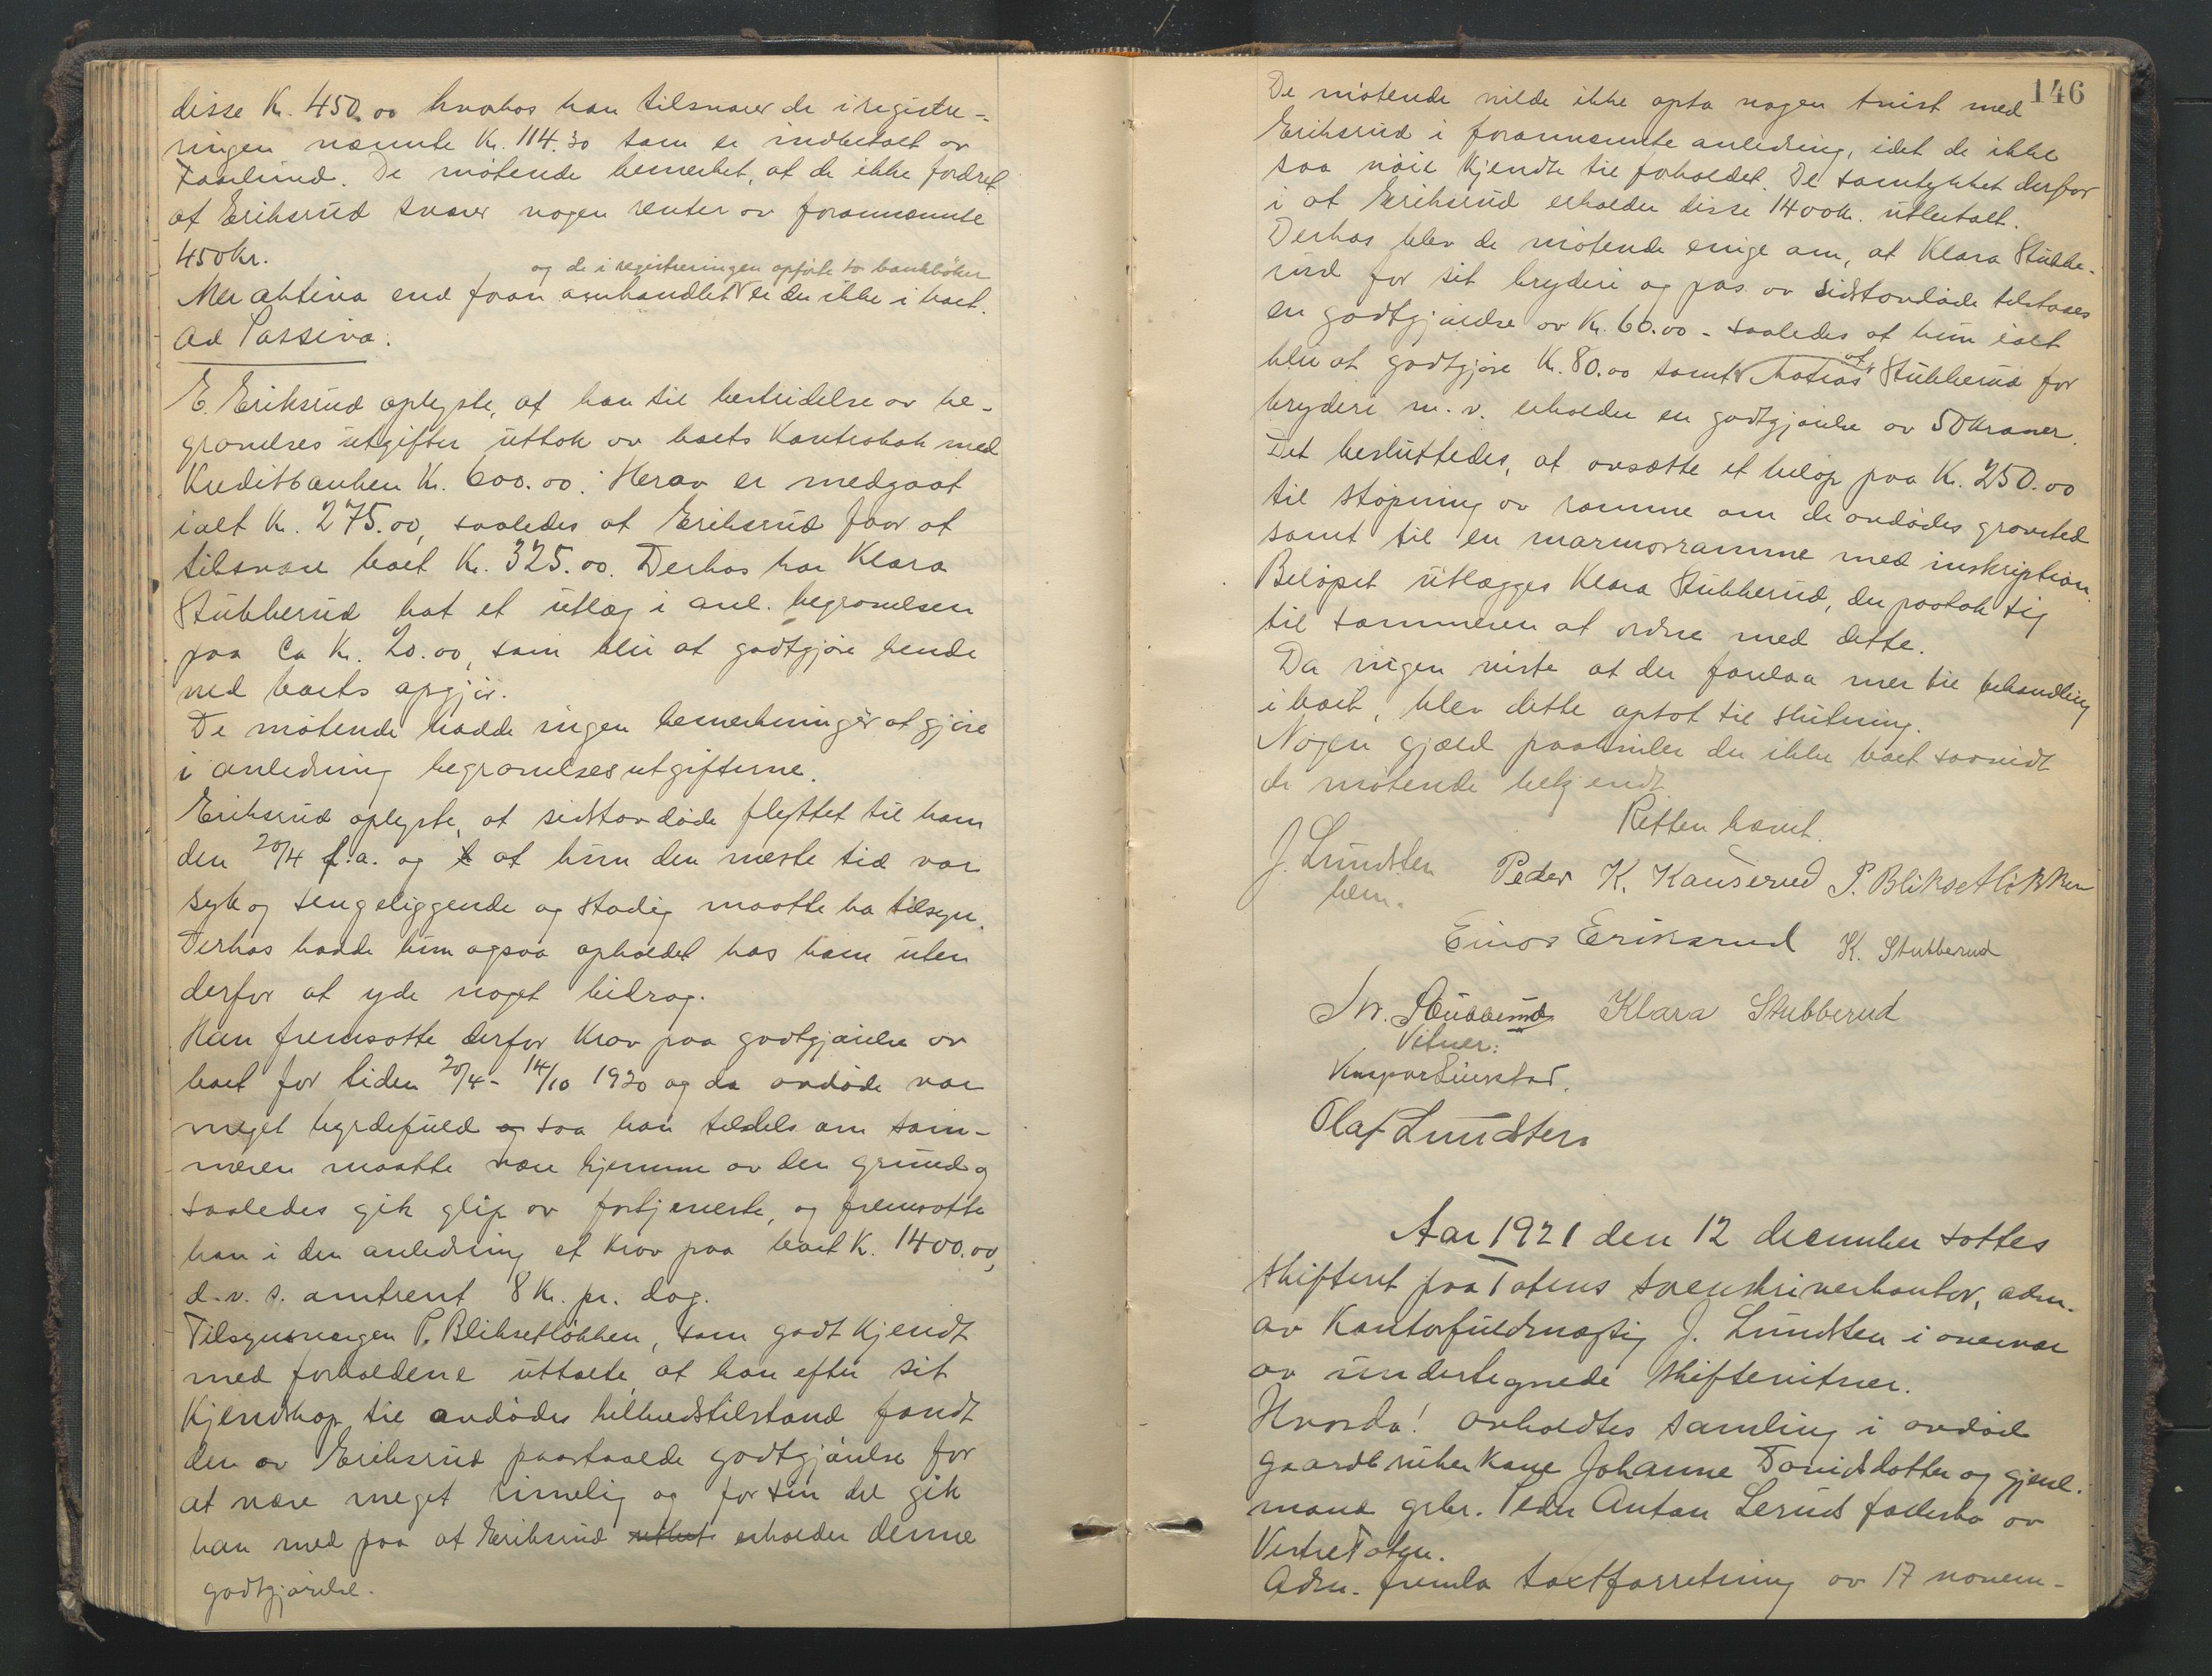 disse Kr. 450.00 hvorhos han tilsvarer de i registre-
ringen nævnte Kr. 114.30 som er indbetalt av
Faarlund. De møtende bemerket, at de ikke fordret
at Eriksrud svarer nogen renter av forannævnte
450 kr.
og de i registreringen opførte to bankbøker
Mer aktiva end foran omhandlet er der ikke i boet.
Ad Passiva.
E. Eriksrud oplyste, at han til bestridelse av be-
gravelses utgifter uttok av boets Kontrabok med
Kreditbanken Kr. 600.00. Herav er medgaat
ialt Kr. 275.00, saaledes at Eriksrud faar at
tilsvare boet Kr. 325.00. Derhos har Klara
Stubberud hat et utlæg i anl. begravelsen
paa ca Kr. 20.00, som blir at godtgjøre hende
ved boets opgjør.
De møtende hadde ingen bemerkninger at gjøre
i anledning begravelsesutgifterne.
Eriksrud oplyste, at sidstavdøde flyttet til ham
den 20/4 f.a. og at hun den meste tid var
syk og sengeliggende og stadig maatte ha tilsyn.
Derhos hadde hun ogsaa opholdet hos ham uten
derfor at yde noget bidrag.
Han fremsatte derfor krav paa godtgjørelse av
boet for tiden 20/4 - 14/10 1920 og da avdøde var
meget byrdefuld og saa han tildels om som-
meren maatte være hjemme av den grund og
saaledes gik glip av fortjeneste, og fremsatte
han i den anledning et krav paa boet K. 1400.00,
d.v.s. omtrent 8 Kr. pr. dag.
Tilsynsvergen P. Blikset­løkken, som godt kjendt
med forholdene uttalte, at han efter sit
kjendskap til avdødes helbredstilstand fandt
den av Eriksrud paastaaede godtgjørelse for
at være meget rimelig og for sin del gik
han med paa at Eriksrud utbet erholder denne
godtgjørelse.
146
De møtende vilde ikke opta nogen tvist med
Eriksrud i forannævnte anledning, idet de ikke
saa nøie kjendte til forholdet. De samtykket derfor
i at Eriksrud erholder disse 1400 kr. utbetalt.
Derhos blev de møtende enige om, at Klara Stubbe-
rud for sit bryderi og pas av sidstavdøde tilstaaes
en godtgjørelse av Kr. 60.00 - saaledes at hun ialt
blir at godtgjøre Kr. 80.00 samt at Matias Stubberud for
bryderi m.v. erholder en godtgjørelse av 50 kroner.
Det besluttedes, at avsætte et beløp paa Kr. 250.00
til støpning av ramme om de avdødes gravsted
samt til en marmorramme med inskription.
Beløpet utlægges Klara Stubberud, der paatok sig
til sommeren at ordne med dette.
Da ingen viste at der forelaa mer til behandling
i boet, blev dette optat til slutning.
Nogen gjæld paahviler der ikke boet saavidt
de møtende bekjendt.
Retten hævet.
J. Lundsten
bem.
Peder K. Kauserud P. Blikset­løkken
Einar Eriksrud K. Stubberud
M. Stubberud Klara Stubberud
Vitner:
Kaspar
Olaf Lundsten
Aar 1921 den 12 december sattes
skifteret paa Totens sorenskriverkontor, adm.
av Kontorfuldmægtig J. Lundsten i overvær
av undertegnede skiftevitner.
Hvorda! avholdtes samling i avdøde
gaardbrukerkone Johanne Davidsdatter og gjenl.
mand gbr. Peder Anton Leruds fællesbo av
Vestre Toten.
Adm. fremla taxtforretning av 17 novem-